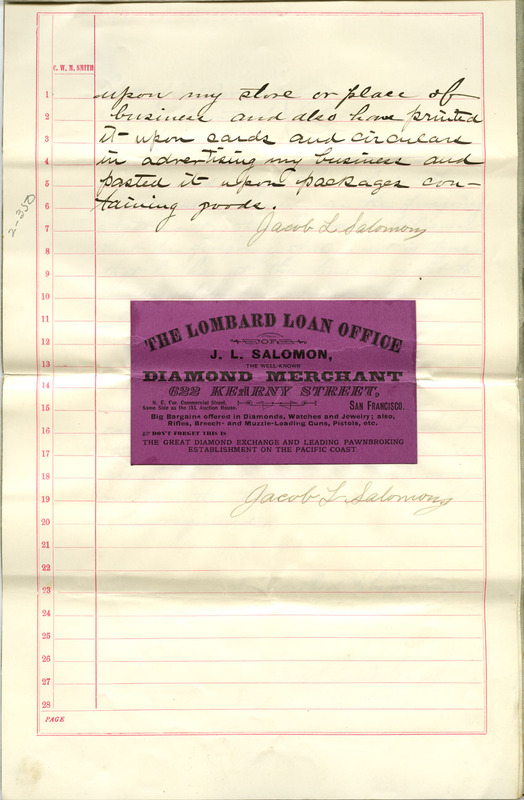 C. W. M. SMITH
1 upon my store or place of
2 business and also have printed
3 it upon cards and circulars
4 in advertising my business and
5 pasted it upon packages con-
6 taining goods.
7 Jacob L Salomons
8
9
10
11
12
13
14
15
16
17
18
19
20
21
22
23
24
25
26
27
28
PAGE
2-350
THE LOMBARD LOAN OFFICE
OF
J. L. SALOMON,
THE WELL-KNOWN
DIAMOND MERCHANT
622 KEARNY STREET,
N. E. Cor. Commercial Street. SAN FRANCISCO.
Same Side as the IXL Auction House.
Big Bargains offered in Diamonds, Watches and Jewelry; also,
Rifles, Breech- and Muzzle-Loading Guns, Pistols, etc.
DON'T FORGET THIS IS
THE GREAT DIAMOND EXCHANGE AND LEADING PAWNBROKING
ESTABLISHMENT ON THE PACIFIC COAST.
Jacob L Salomons